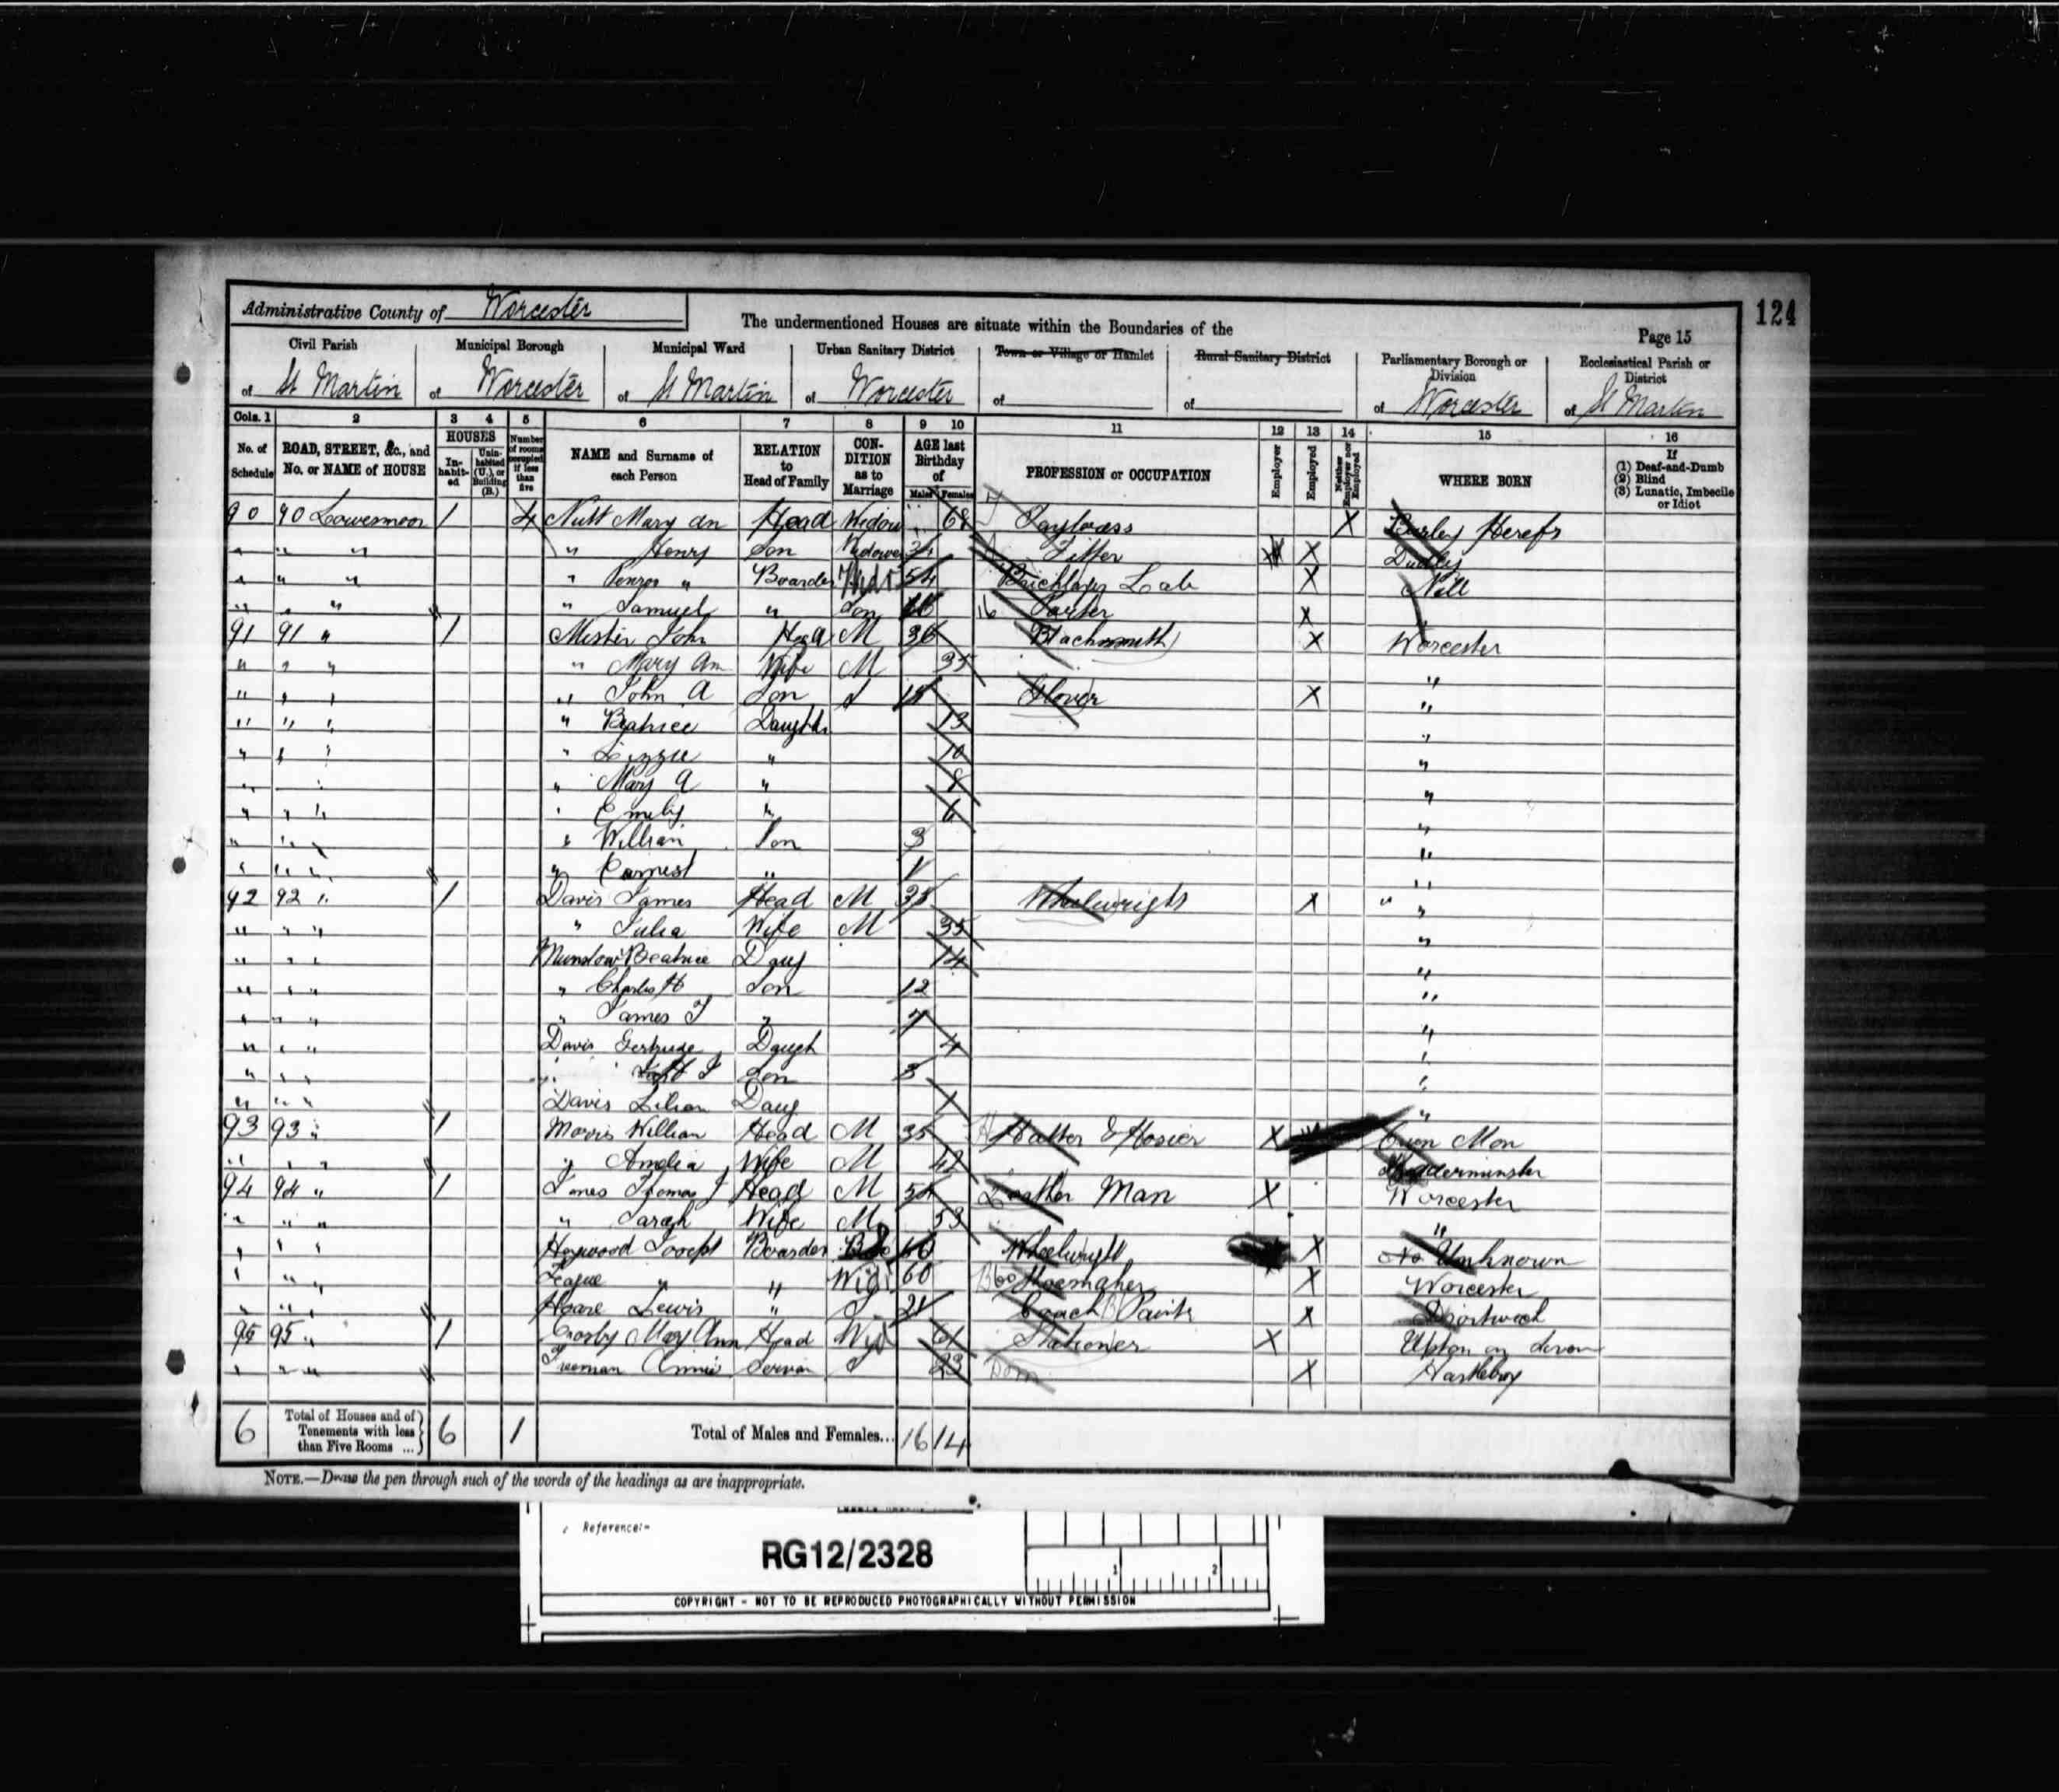 124
Administrative County of Worcester
The undermentioned Houses are situate within the Boundaries of the
Page 15
Civil Parish of St Martin
Municipal Borough of Worcester
Municipal Ward of St Martin
Urban Sanitary District of Worcester
Town or Village or Hamlet of
Rural Sanitary District of
Parliamentary Borough or Division of Worcester
Ecclesiastical Parish or District of St Martin
Cols. 1 2 3 4 5 6 7 8 9 10 11 12 13 14 15 16
No. of Schedule
ROAD, STREET, &c., and No. or NAME of HOUSE
HOUSES
In-habit-ed
Unin-habited (U.), or Building (B.)
Number of rooms occupied if less than five
NAME and Surname of each Person
RELATION to Head of Family
CON-DITION as to Marriage
AGE last Birthday of
Males Females
PROFESSION or OCCUPATION
Employer
Employed
Neither Employer nor Employed
WHERE BORN
If
(1) Deaf-and-Dumb
(2) Blind
(3) Lunatic, Imbecile or Idiot
90 90 Lowesmoor 1 4 Nutt Mary An Head Widow 68 X Herefs
" " " " Henry Son Widower Fitter X Dudley
" " " " " Boarder 54 Bricklayer Lab X
" " " " Samuel " Son 16 X
91 91 " 1 John Head M 36 Blacksmith X Worcester
" " " " Mary An Wife M 35 "
" " " " John A Son S Glover X "
" " " " Beatrice Daughter 13 "
" " " " Lizzie " 10 "
" " " " Mary A " 8 "
" " " " Emily " 6 "
" " " " William Son 3 "
" " " " Earnest " 1 "
92 92 " 1 Davis James Head M Wheelwright X " "
" " " " Julia Wife M 35 "
" " " Munslow Beatrice Daug 14 "
" " " " Charles H Son 12 "
" " " " James T " 7 "
" " " Davis Gertrude Daugh 4 "
" " " " Son 3 "
" " " Davis Lilian Daug 1 "
93 93 " 1 Morris William Head M 35 Hatter & Hosier X Mon
" " " " Amelia Wife M 42 Kidderminster
94 94 " 1 Jones Thomas J Head M Leather Man X Worcester
" " " " Sarah Wife M 53 "
" " " Haywood Joseph Boarder Wheelwright X Unknown
" " " Teague " " Wid 60 Shoemaker X Worcester
" " " Hoare Lewis " S 21 Coach Paint X Droitwich
95 95 " 1 Crosby Mary Ann Head Wid 61 Stationer X Upton on Severn
" " " Freeman Annie Servan S 23 Dom X Hartlebury
6 Total of Houses and of Tenements with less than Five Rooms ... 6 1 Total of Males and Females... 16 14
NOTE.—Draw the pen through such of the words of the headings as are inappropriate.
Reference:-
RG12/2328
1 2
COPYRIGHT - NOT TO BE REPRODUCED PHOTOGRAPHICALLY WITHOUT PERMISSION